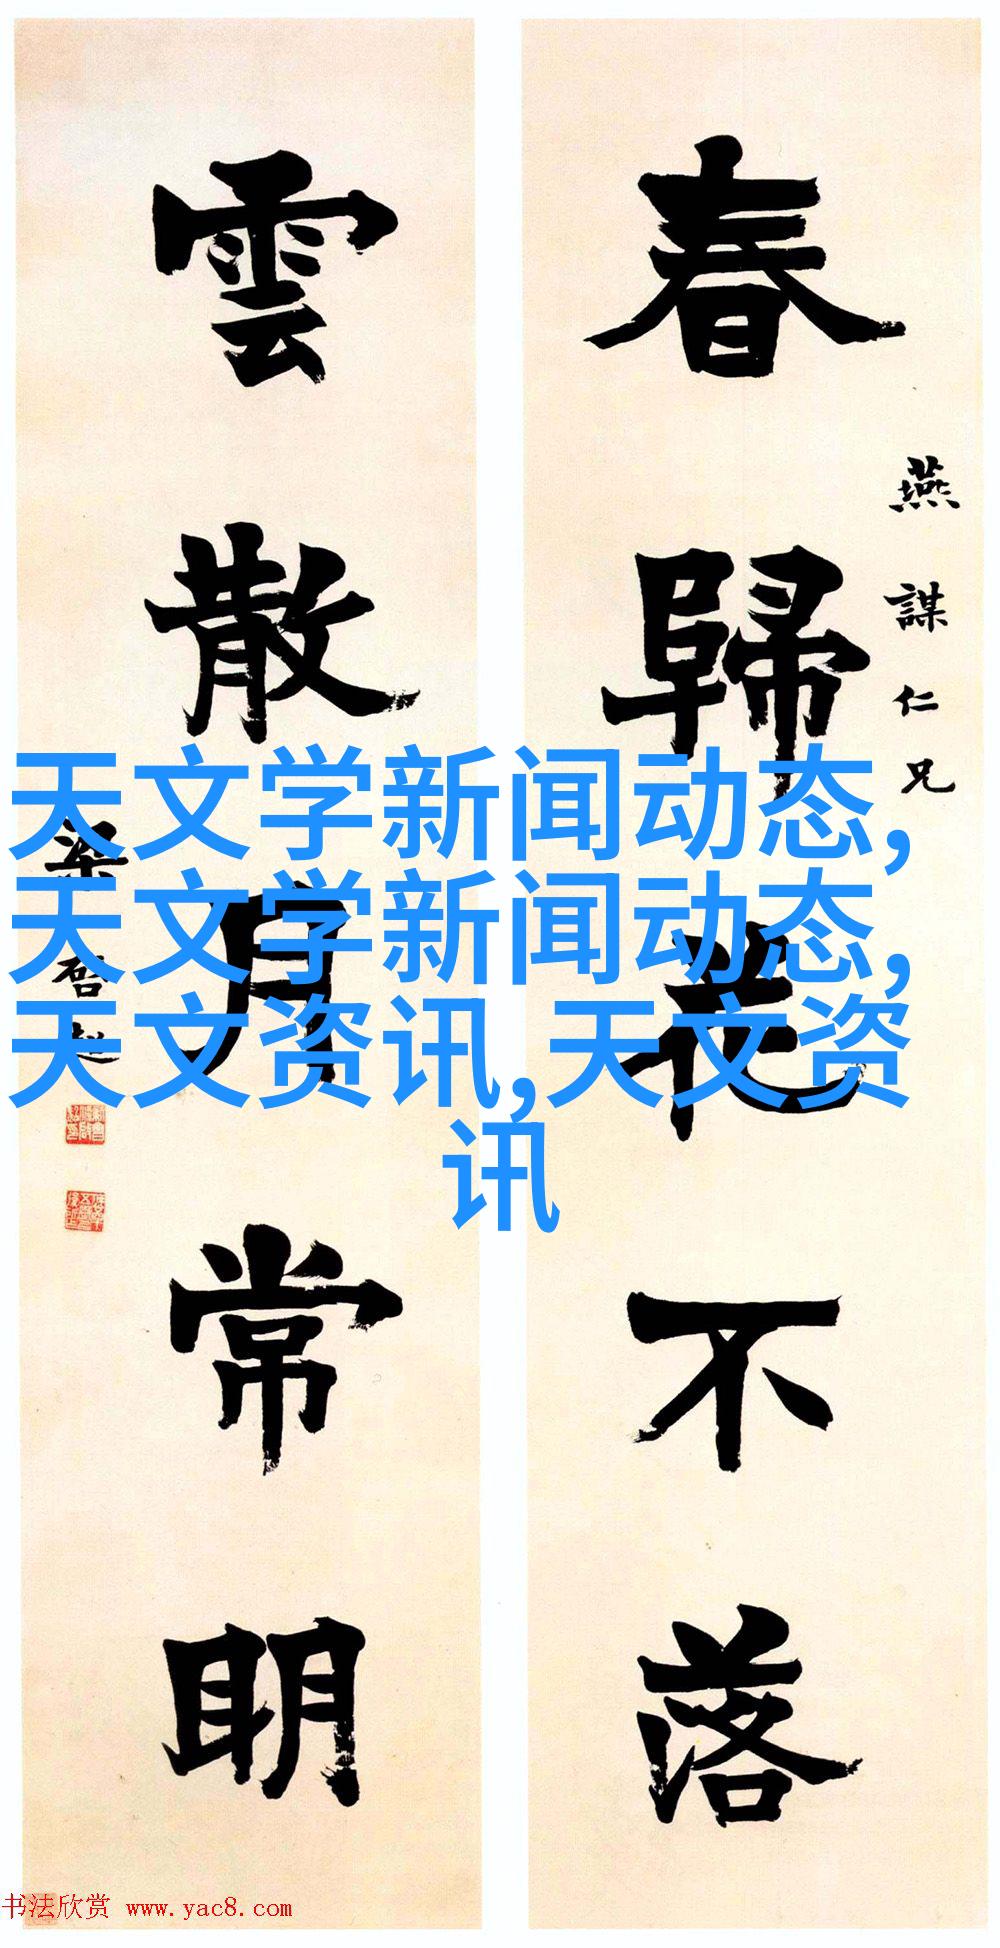 燕謀仁兄
春歸花不落
雲散月常明
梁啓超
天文学新闻动态,
天文学新闻动态,
天文资讯,天文资
讯
书法欣赏 www.yac8.com